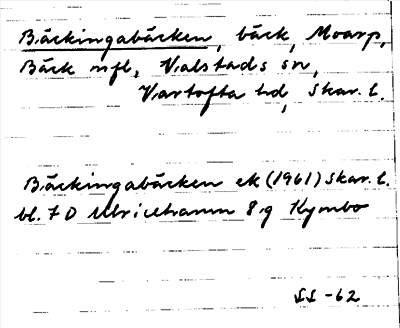 Bäckingabäcken, bäck, Moarp,
Bäck mfl, Valstads sn,
Vartofta hd, Skar. l.
Bäckingabäcken ek (1961) Skar. l.
bl. 7 D Ulricehamn 8 g Kymbo
SS -62